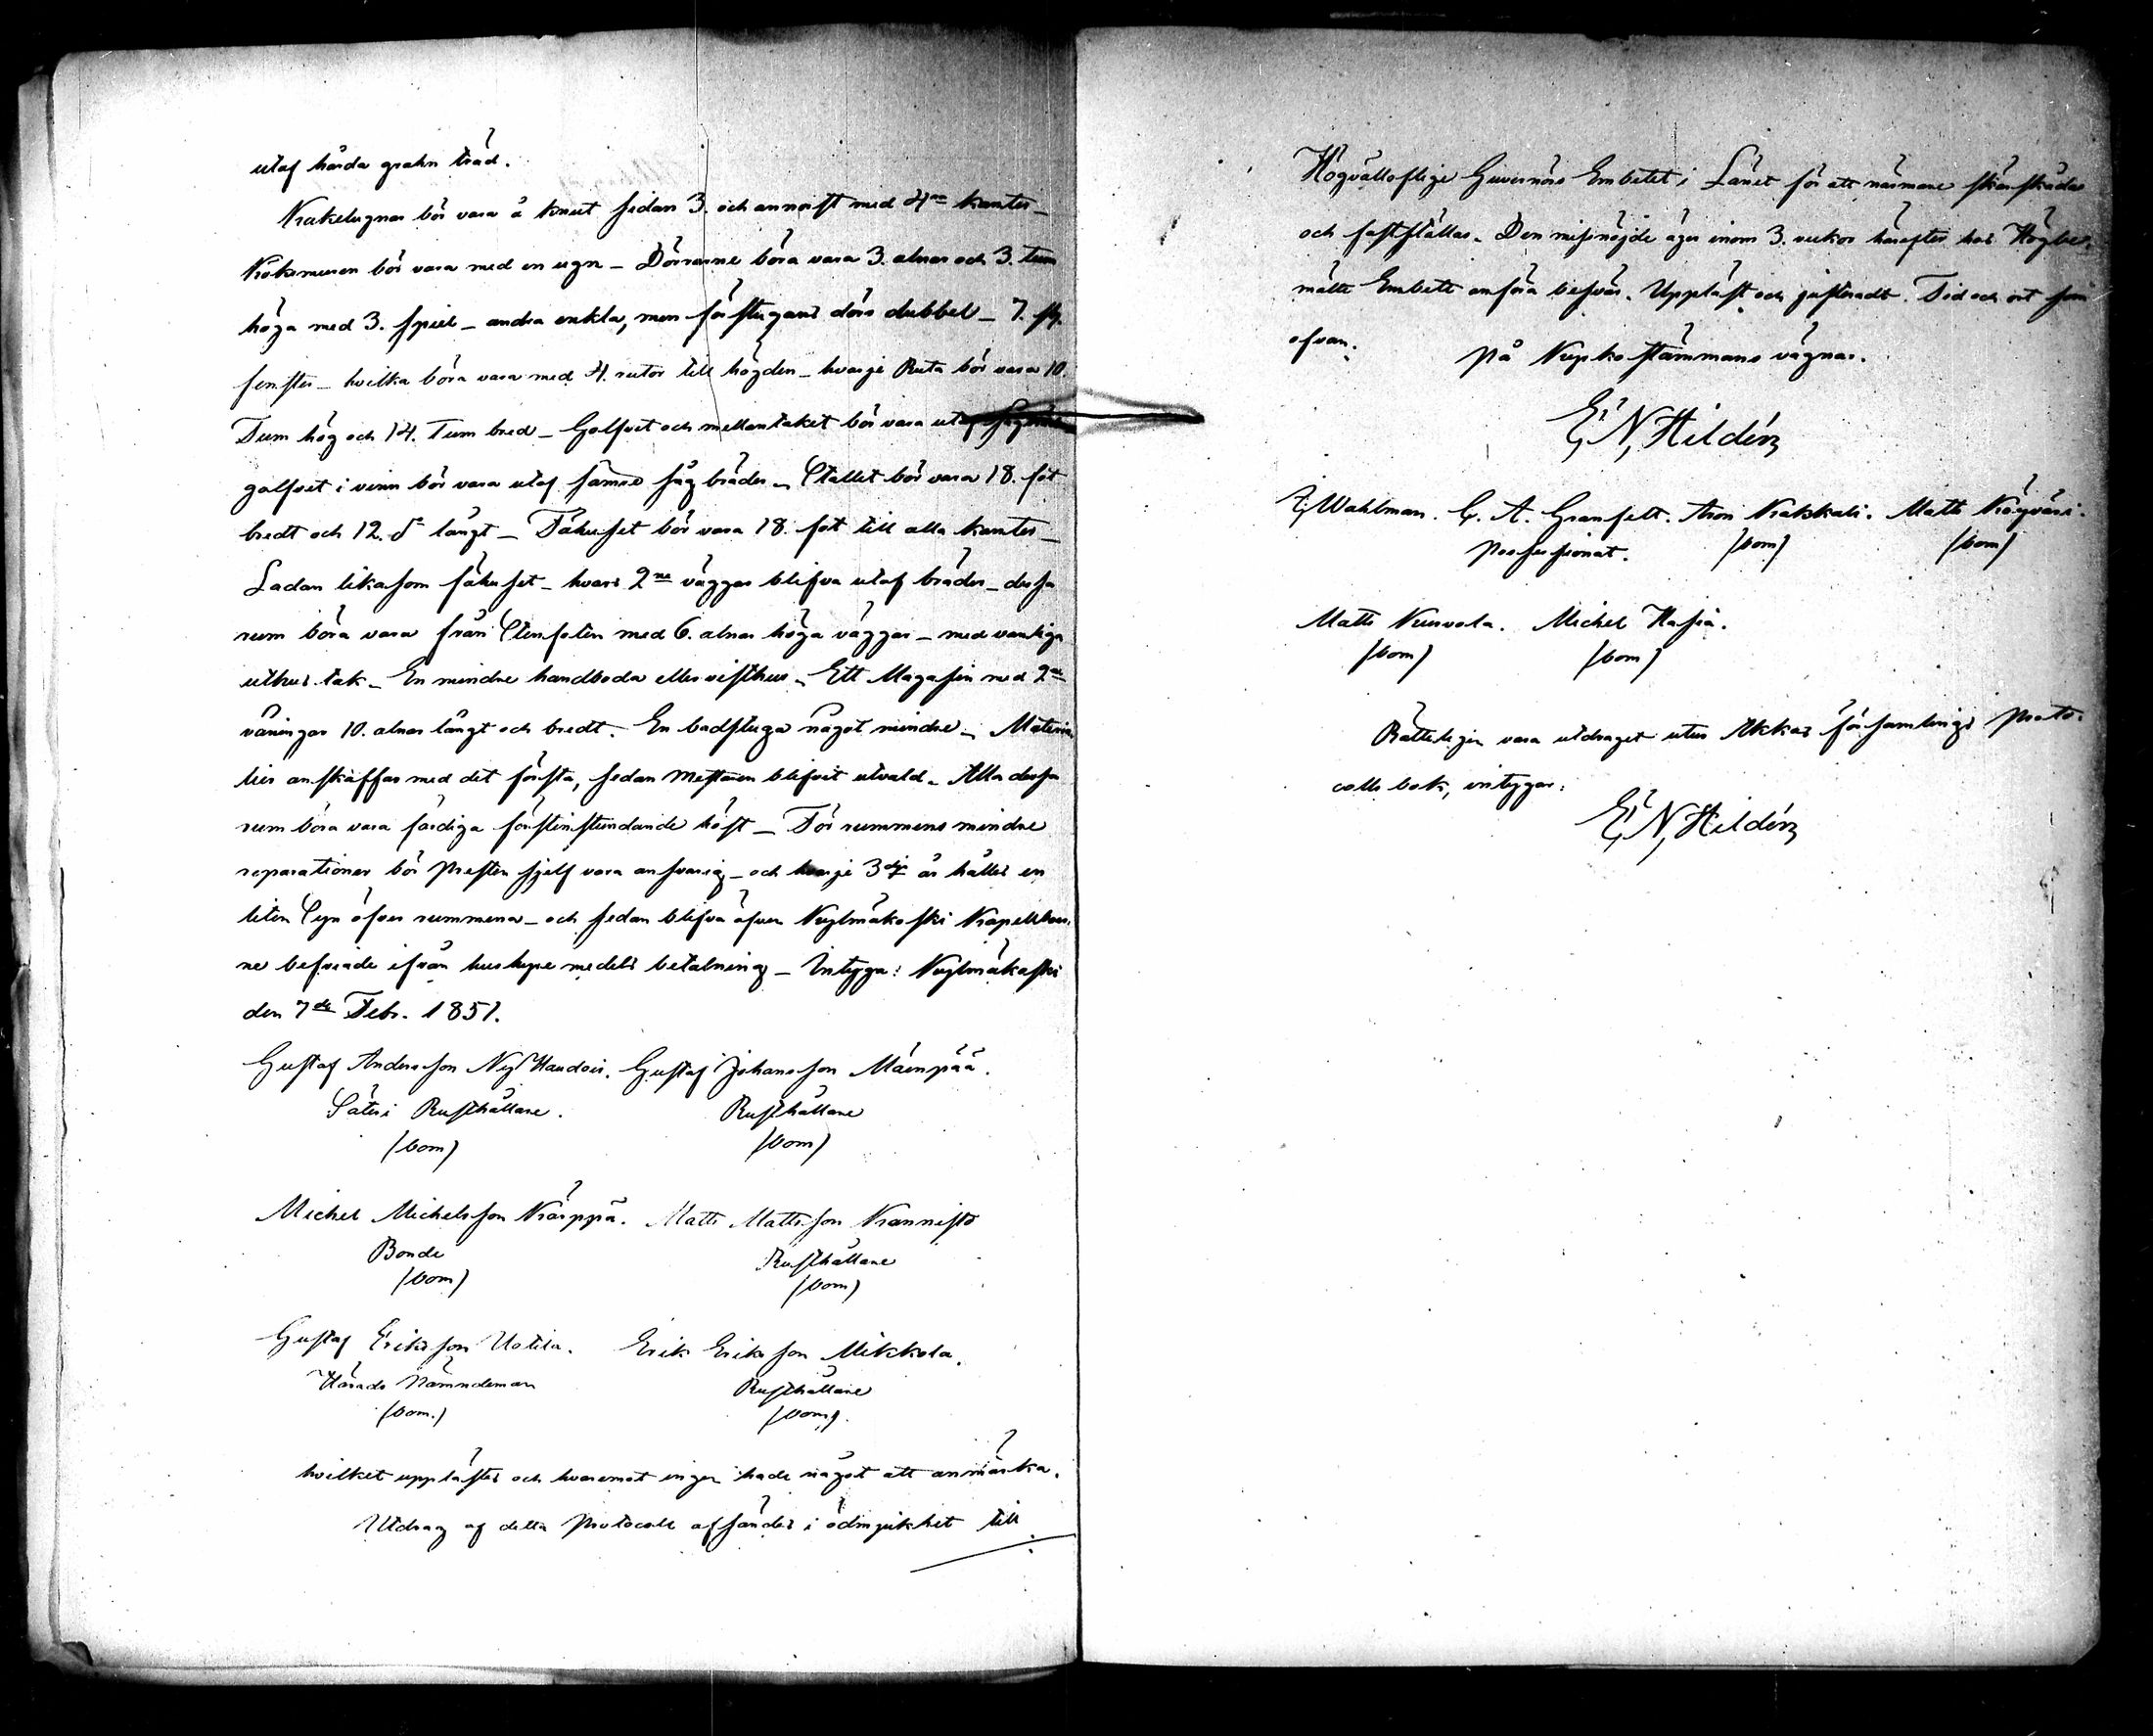 utaf hårda grahn träd.
Kakelugnar bör vara å knut sedan 3. och annorst med 4ra kanter –
Köksmuren bör vara med en ugn – Dörrarne böra vara 3. alnar och 3. tum
höga med 3. spiel – andra enkla, men förstugans dörr dubbel – 7. st.
fenster – hvilka böra vara med 4. rutor till högden – hvarje Ruta bör vara 10.
Tum hög och 14. Tum bred – Golfvet och mellantaket bör vara utaf
golfvet i vinn bör vara utaf sämre såg bräder – Stallet bör vara 18. fot
bredt och 12. do långt – Fähuset bör vara 18. fot till alla kanter –
Ladan likasom fähuset – hvars 2ne väggar blifva utaf bräder – dessa
rum böra vara från Stenfoten med 6. alnar höga väggar – med vanliga
uthus tak – En mindre handboda eller visthus – Ett Magasin med 2ne
våningar 10. alnar långt och bredt. En badstuga något mindre – Materia-
lier anskaffas med det första, sedan Mestaren blifvit utvald – Alla dessa
rum böra vara färdiga förstinstundande höst – För rummens mindre
reparationer bör Presten sjelf vara ansvarig – och hvarje 3dje år hålles en
liten Syn öfver rummena – och sedan blifva äfven Kylmäkoski Kapellboer-
ne befriade ifrån hushyre medels betalning – Intyga: Kylmäkoski
den 7de Febr. 1851.
Gustaf Andersson Ny Haudois. Gustaf Johansson Mäenpää.
Säteri Rusthållare. Rusthållare
(bom) (bom)
Michel Michelsson Kärppä. Matts Mattsson Kannisto
Bonde Rusthållare
(bom) (bom)
Gustaf Eriksson Uotila. Erik Eriksson Mikkola.
Härads Nämndeman Rusthållare
(bom.) (bom).
hvilket upplästes och hvaremot ingen hade något att anmärka.
Utdrag af detta Protocoll afsändes i ödmjukhet till
Högvälloflige Guvernörs Embetet i Länet för att närmare skärskådas
och fastställas. Den missnöjde äger inom 3. veckor härefter hos Högbe-
mälte Embete anföra besvär. Uppläst och justeradt. Tid och ort som
ofvan. På Kyrkostämmans vägnar.
E. N. Hildén
Wahlman. C. A. Granfelt. Aron Kakkali. Matts Köyväri.
Possessionat. (bom) (bom)
Matts Kurvola. Michel Hasia.
(bom) (bom)
Rätteligen vara utdraget utur Akkas församlings Proto-
colls bok, intygar:
E. N. Hildén